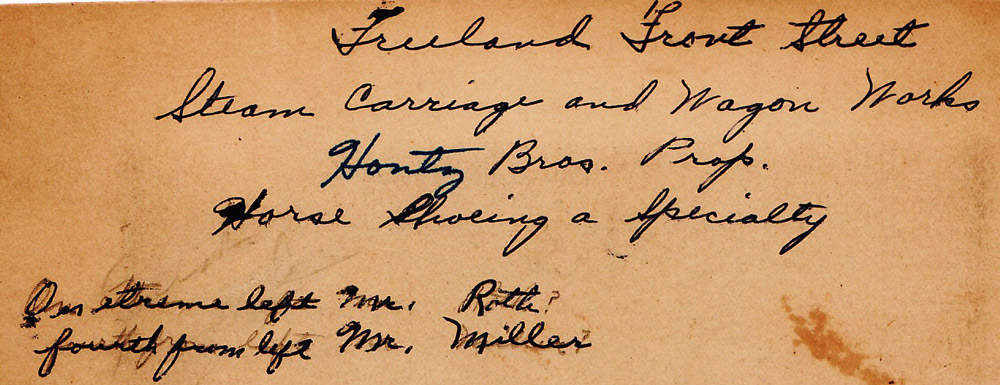 Freeland Front Street
Steam Carriage and Wagon Works
Hontz Bros. Prop.
Horse Shoeing a Specialty
On extreme left Mr. Roth?
fourth from left Mr. Miller